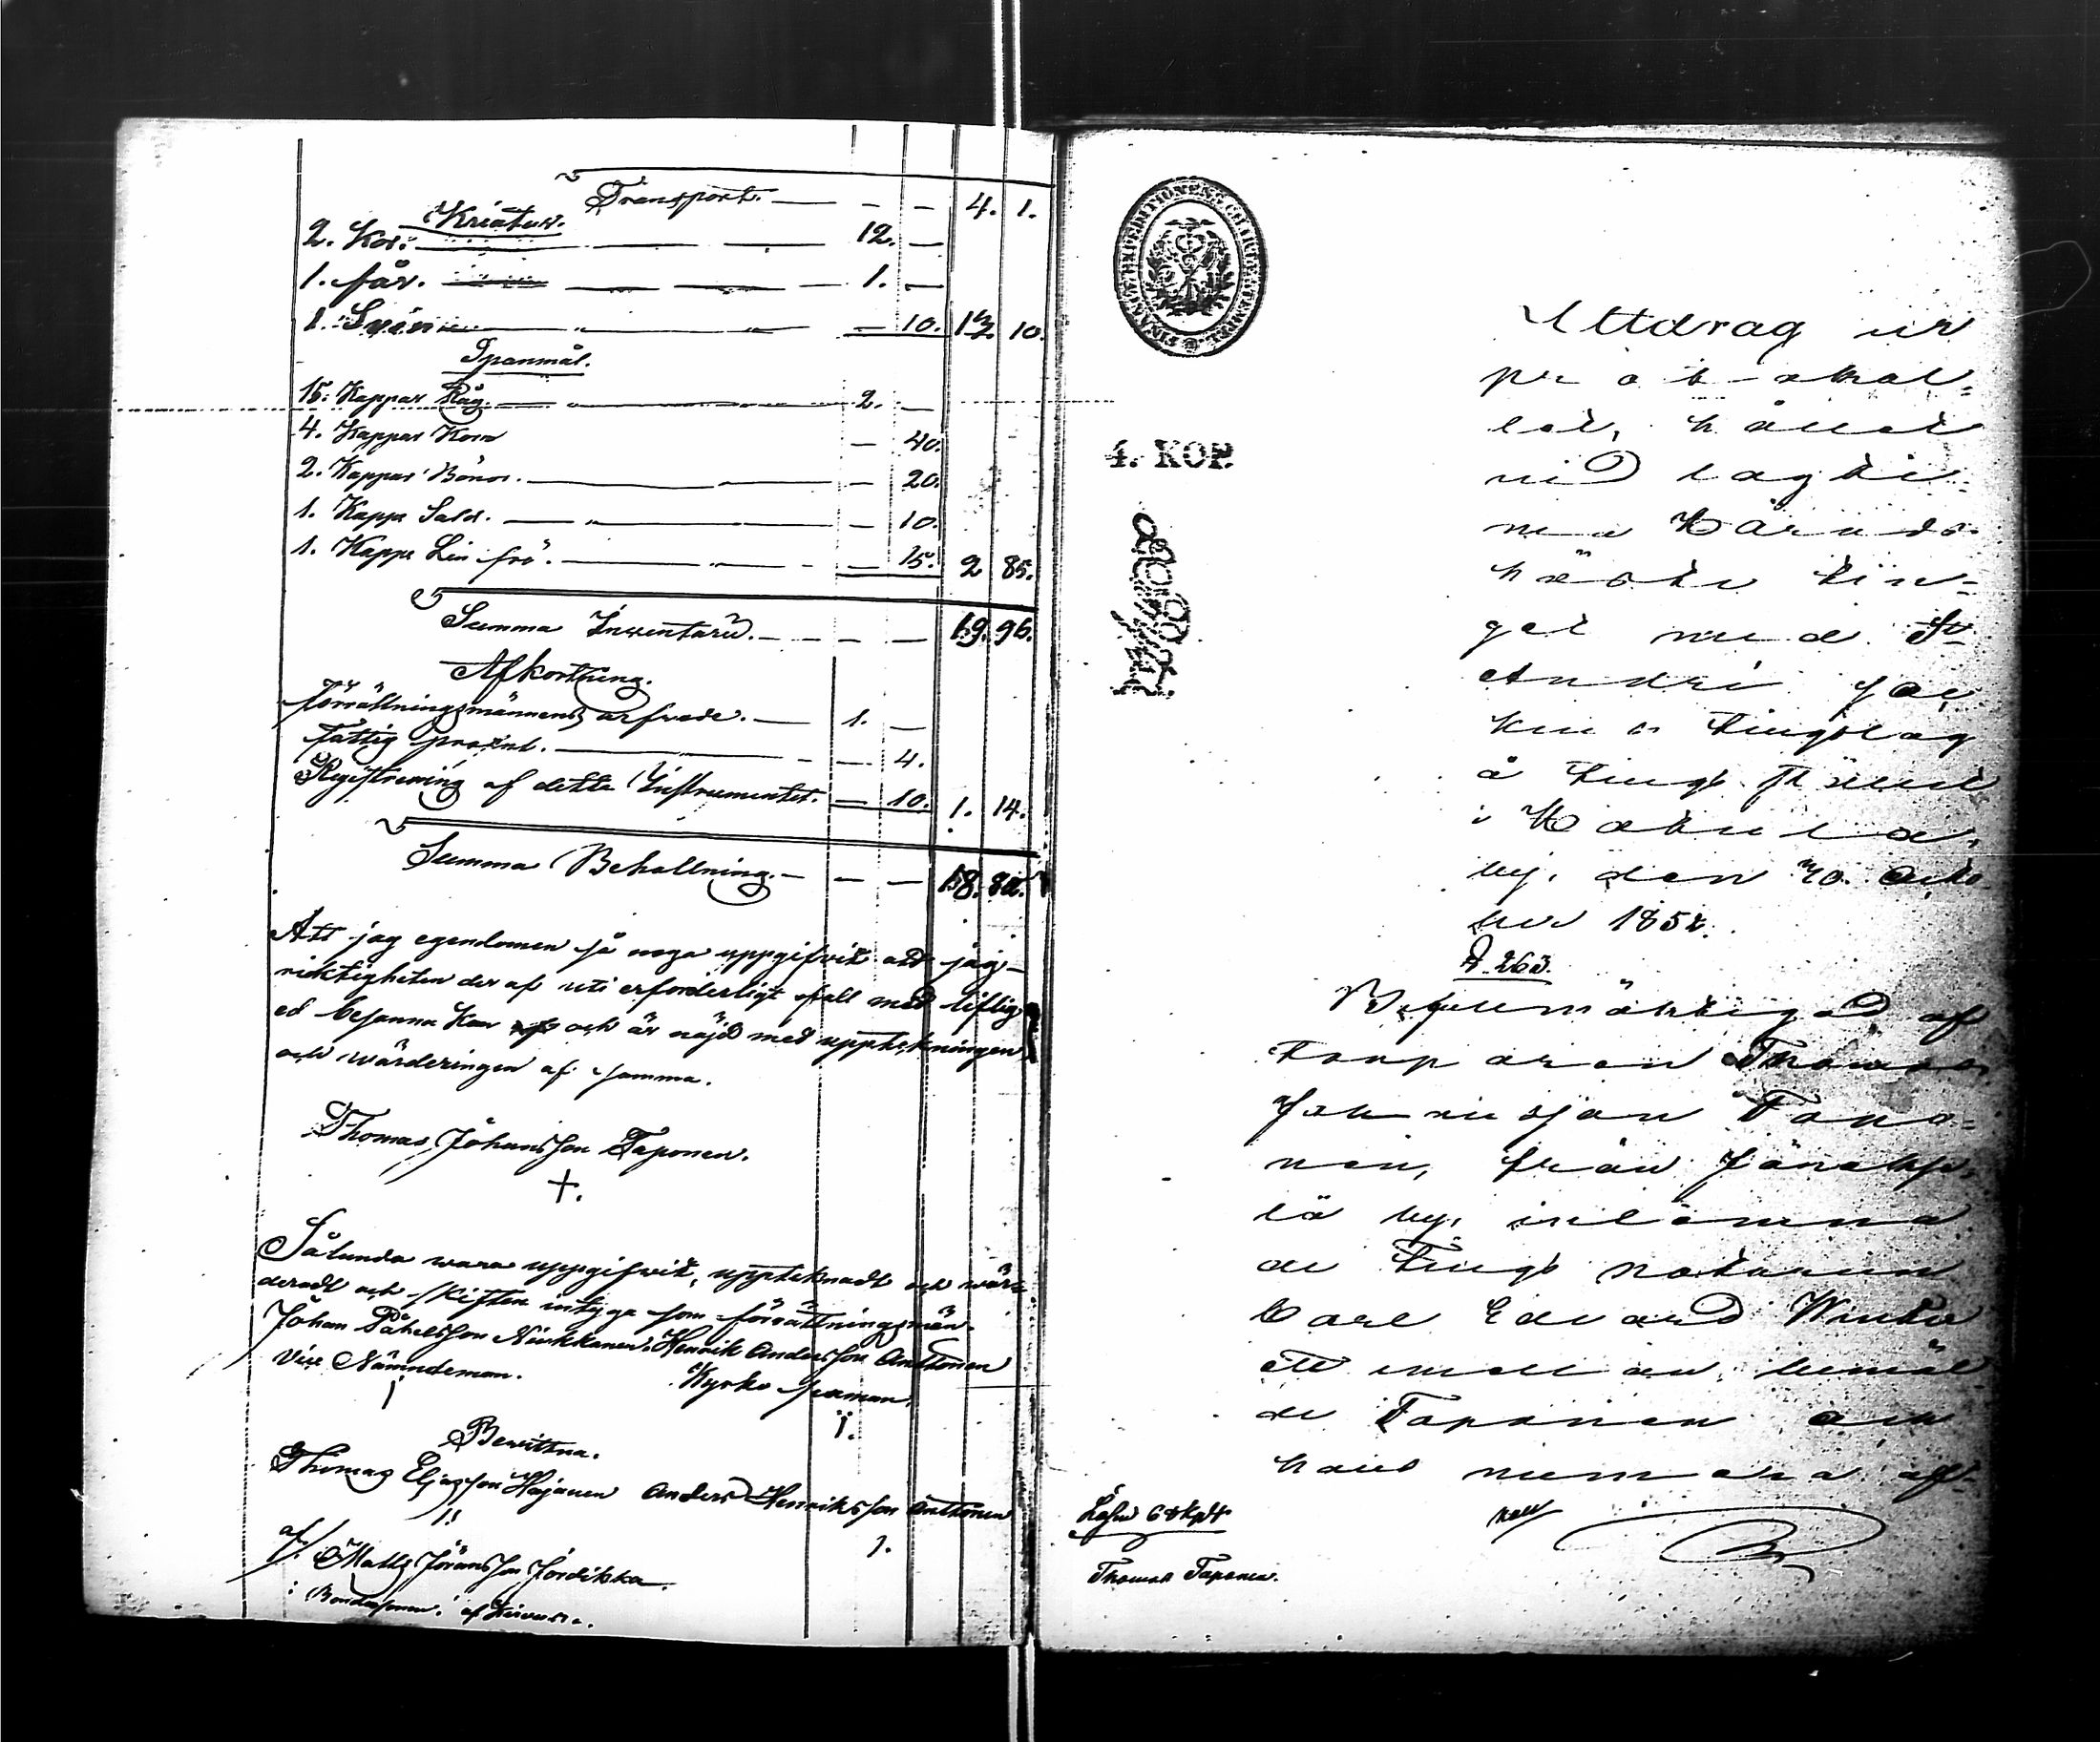 Transport. — — — 4. 1.
Kriatur.
2. Kor. — 12. —
1. får. — 1. —
1. Svin — 10. 13 10.
Spanmål.
15. Kappar Råg. — 2. —
4. Kappar Korn — 40.
2. Kappar Bönor. — 20.
1. Kappe Salt. — 10.
1. Kappe Lin frö. — 15. 2 85.
Summa Inventarii. — — — 19. 96.
Afkortning.
förrättningsmännens arfvode. — 1. —
fattig procent. — — 4.
Registrering af detta Instrumentet. — 10. 1. 14.
Summa Behallning. — — — 18. 82.
Att jag egendomen så noga uppgifvit att jag
riktigheten deraf uti erforderligt fall med liflig
ed besanna Kan och är nöjd med upptekningen
och wärderingen af samma.
Thomas Johansson Taponen.
+.
Sålunda wara uppgifvit, uppteknadt och wär-
deradt och skiften intyga som förrättningsmän.
Johan Påhelsson Henrik Andersson Anttonen
Vice Nämndeman. Kyrko
Bewittna.
Thomas Eljasson Hajanen Anders Henriksson Anttonen
af/. Matts Jöransson
FINANS-EXPEDITIONENS CHARTÆ STEMPEL
4. KOP.
Utdrag ur
protokol-
let, hållet
vid lagti-
ma Härads
höste tin-
get med S:t
Andræ soc-
kens Tingslag
å Tings stället
i
by, den 30. Octo-
ber 1852.
§ 263.
Befullmäktigad af
Torparen Thomas
Johansson Tapo-
nen, från
lä by, inlämna
de Tings notarien
Carl Edvard
ett emellan bemäl-
de Taponen och
hans numera af-
Lösen 68 kop.
Thomas Taponen.